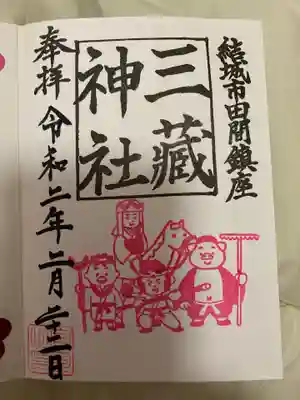 結城市田間鎮座
三藏
神社
奉拝 令和二年二月二十三日